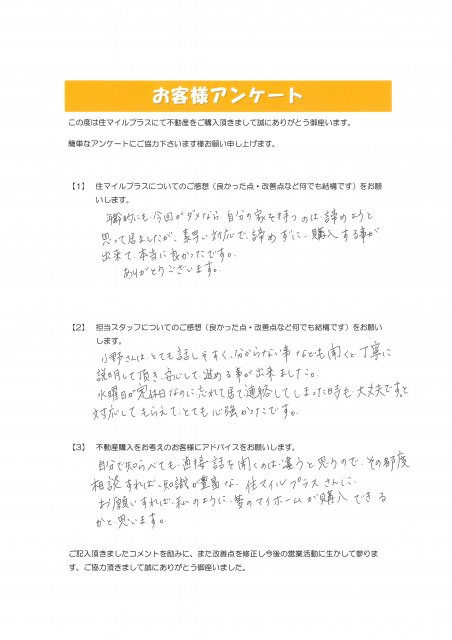 お客様アンケート
この度は住マイルプラスにて不動産をご購入頂きまして誠にありがとう御座います。
簡単なアンケートにご協力下さいます様お願い申し上げます。
【1】 住マイルプラスについてのご感想（良かった点・改善点など何でも結構です）をお願
いします。
年齢的にも、今回がダメなら、自分の家を持つのは、諦めようと
思って居ましたが、素早い対応で、諦めずに、購入する事が
出来て、本当に良かったです。
ありがとうございます。
【2】 担当スタッフについてのご感想（良かった点・改善点など何でも結構です）をお願い
します。
小野さんは、とても話しやすく、分からない事なども聞くと、丁寧に
説明して頂き、安心して、進める事が出来ました。
水曜日が定休日なのに、忘れて居て、連絡してしまった時も、大丈夫ですと
対応してもらえて、とても心強かったです。
【3】 不動産購入をお考えのお客様にアドバイスをお願いします。
自分で知らべても、直接話を聞くのは違うと思うので、その都度
相談すれば、知識が豊富な、住マイルプラスさんに、
お願いすれば、私のように、夢のマイホームが購入できる
かと思います。
ご記入頂きましたコメントを励みに、また改善点を修正し今後の営業活動に生かして参りま
す。ご協力頂きまして誠にありがとう御座いました。